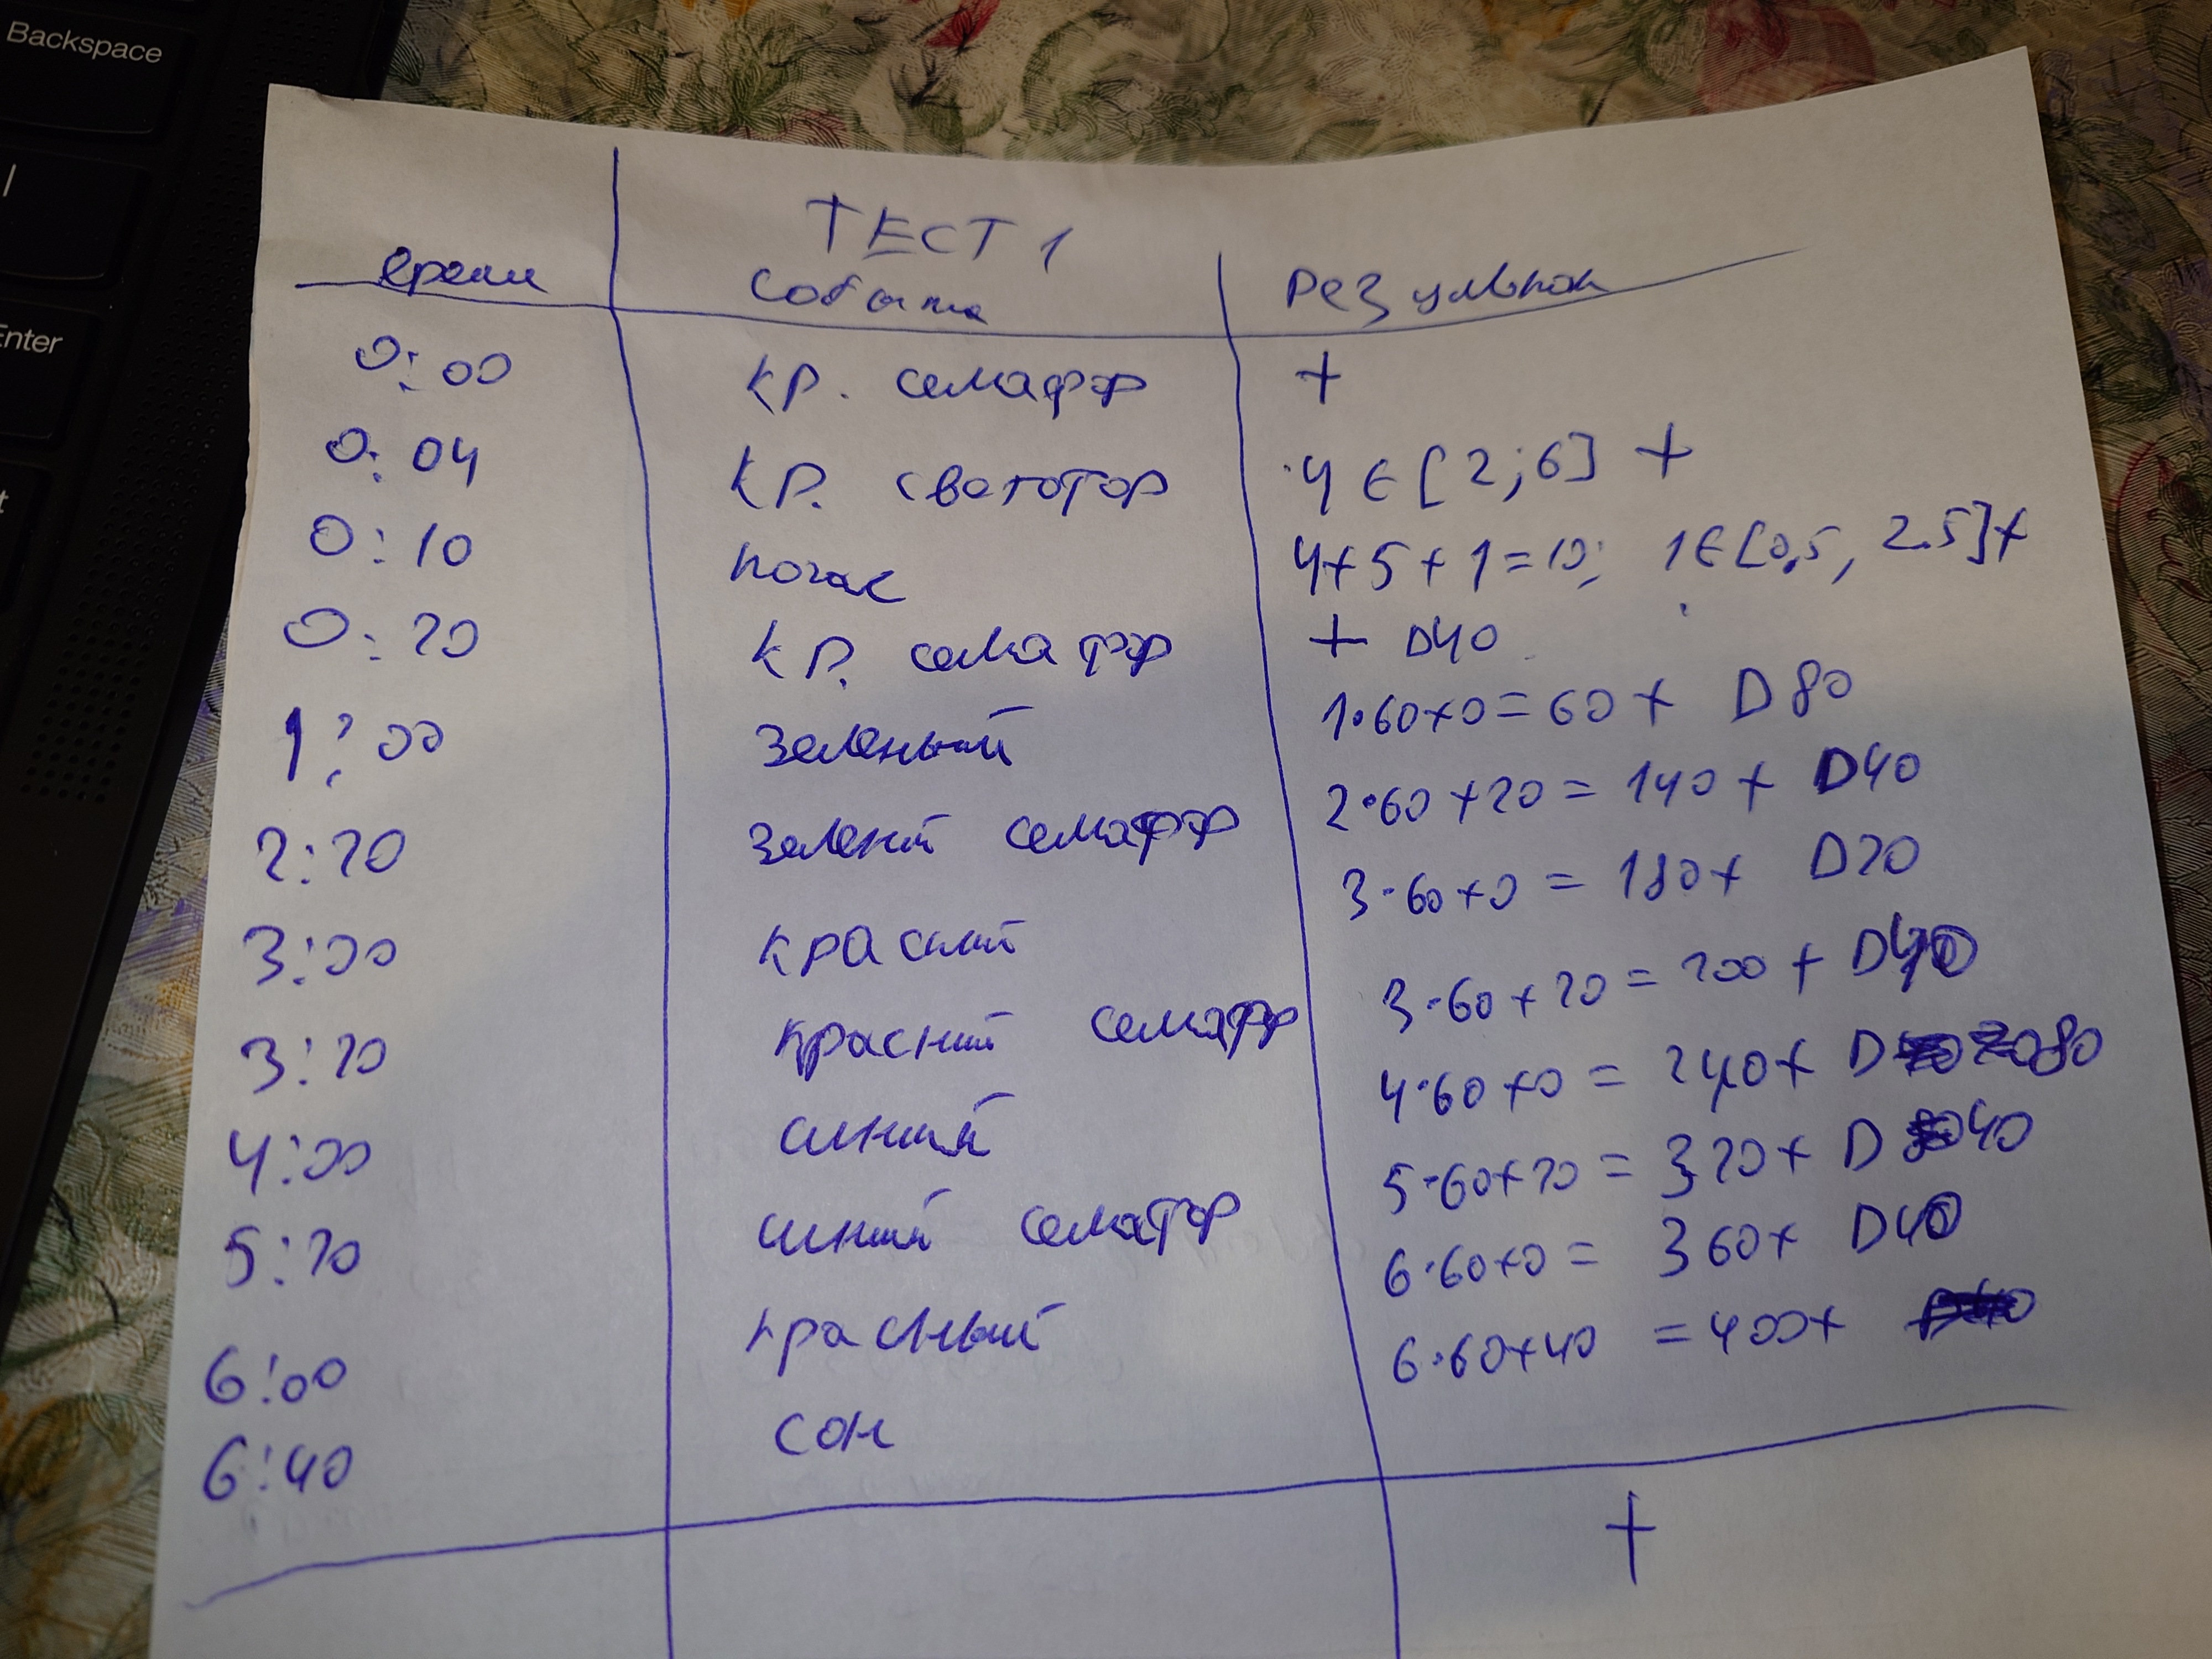 Backspace
Enter
ТЕСТ 1
время события результат
0:00 кр. семафор +
0:04 кр. светофор 4 ∈ [2;6] +
0:10 погас 4+5+1=10; 1∈[0,5, 2.5]+
0:20 кр. семафор + D40
1:00 зеленый 1·60+0=60 + D80
2:20 зелений семафор 2·60+20=140 + D40
3:00 красный 3·60+0=180+ D20
3:20 красный семафор 3·60+20=200 + D40
4:00 синий 4·60+0=240+ D80
5:20 синий семафор 5·60+20=320+ D40
6:00 красный 6·60+0=360+ D40
6:40 сон 6·60+40=400+
+